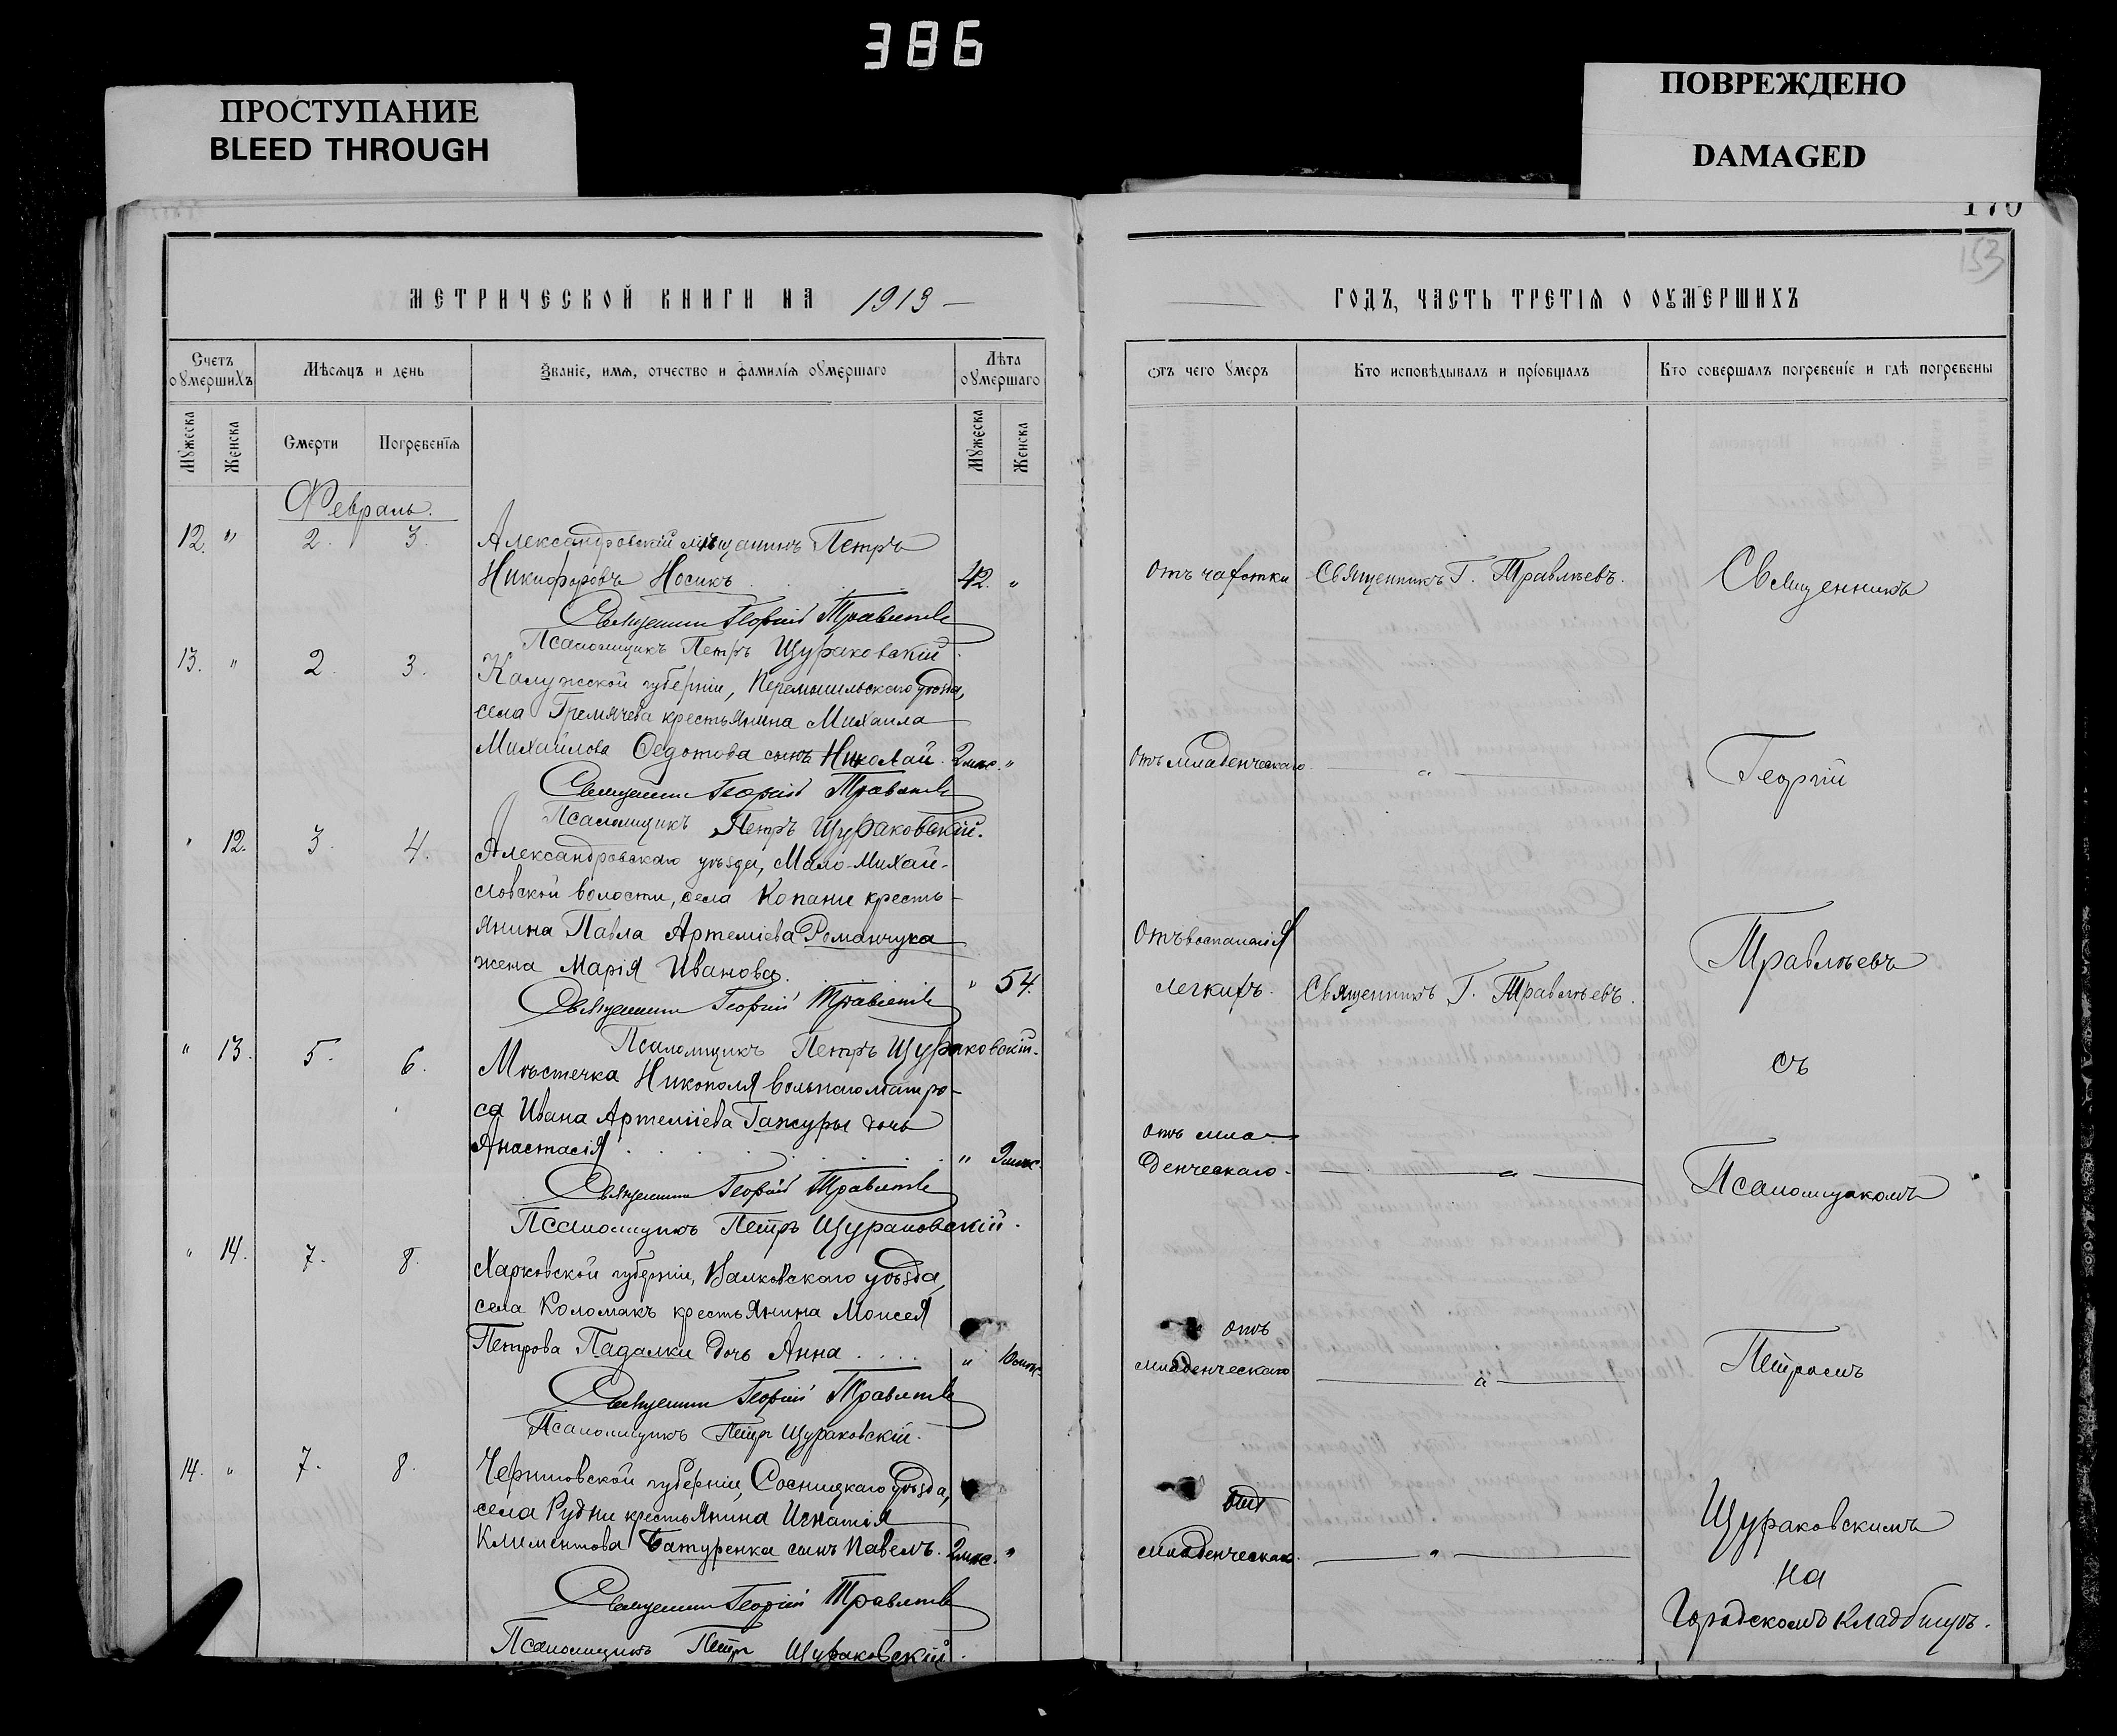 386
ПРОСТУПАНИЕ
BLEED THROUGH
ПОВРЕЖДЕНО
DAMAGED
170
153
МЕТРИЧЕСКОЙ КНИГИ НА 1913
ГОДЪ, ЧАСТЬ ТРЕТІЯ О ОУМЕРШИХЪ
Счетъ оумершихъ
Мѣсяцъ и день
Званіе, имя, отчество и фамилія оумершаго
Лѣта оумершаго
Отъ чего умеръ
Кто исповѣдывалъ и пріобщалъ
Кто совершалъ погребеніе и гдѣ погребены
Мужеска
Женска
Смерти
Погребенія
Мужеска
Женска
Февраль.
12. " 2. 3. Александровскій мѣщанинъ Петръ
Никифоровъ Носикъ 42. " Отъ чахотки Священникъ Г. Травлѣевъ. Священникъ
Священникъ Георгій Травлѣевъ
Псаломщикъ Петръ Щураковскій.
13. " 2. 3. Калужской губерніи, Перемышльскаго уѣзда,
села Гремячева крестьянина Михаила
Михайлова Ѳедотова сынъ Николай. 2 мѣс. " Отъ младенческаго " Георгій
Священникъ Георгій Травлѣевъ
Псаломщикъ Петръ Щураковскій.
" 12. 3. 4. Александровскаго уѣзда, Мало-Михай-
ловской волости, села Копани кресть-
янина Павла Артеміева Романчука Отъ воспаленія Травлѣевъ
жена Марія Иванова. " 54. легкихъ. Священникъ Г. Травлѣевъ.
Священникъ Георгій Травлѣевъ
Псаломщикъ Петръ Щураковскій.
" 13. 5. 6. Мѣстечка Никополя вольнаго матро- съ
са Ивана Артеміева Гажуры дочь Отъ мла-
Анастасія " 2 мѣс. денческаго. " Псаломщикомъ
Священникъ Георгій Травлѣевъ
Псаломщикъ Петръ Щураковскій.
" 14. 7. 8. Харковской губерніи, Валковскаго уѣзда,
села Коломакъ крестьянина Моисея отъ
Петрова Падалки дочь Анна " младенческаго " Петромъ
Священникъ Георгій Травлѣевъ
Псаломщикъ Петръ Щураковскій.
14. " 7. 8. Черниговской губерніи, Сосницкаго уѣзда,
села Рудни крестьянина Игнатія отъ Щураковскимъ
Климентова Батуренка сынъ Павелъ. 2 мѣс. " младенческаго. " на
Священникъ Георгій Травлѣевъ
Городскомъ кладбищѣ.
Псаломщикъ Петръ Щураковскій.